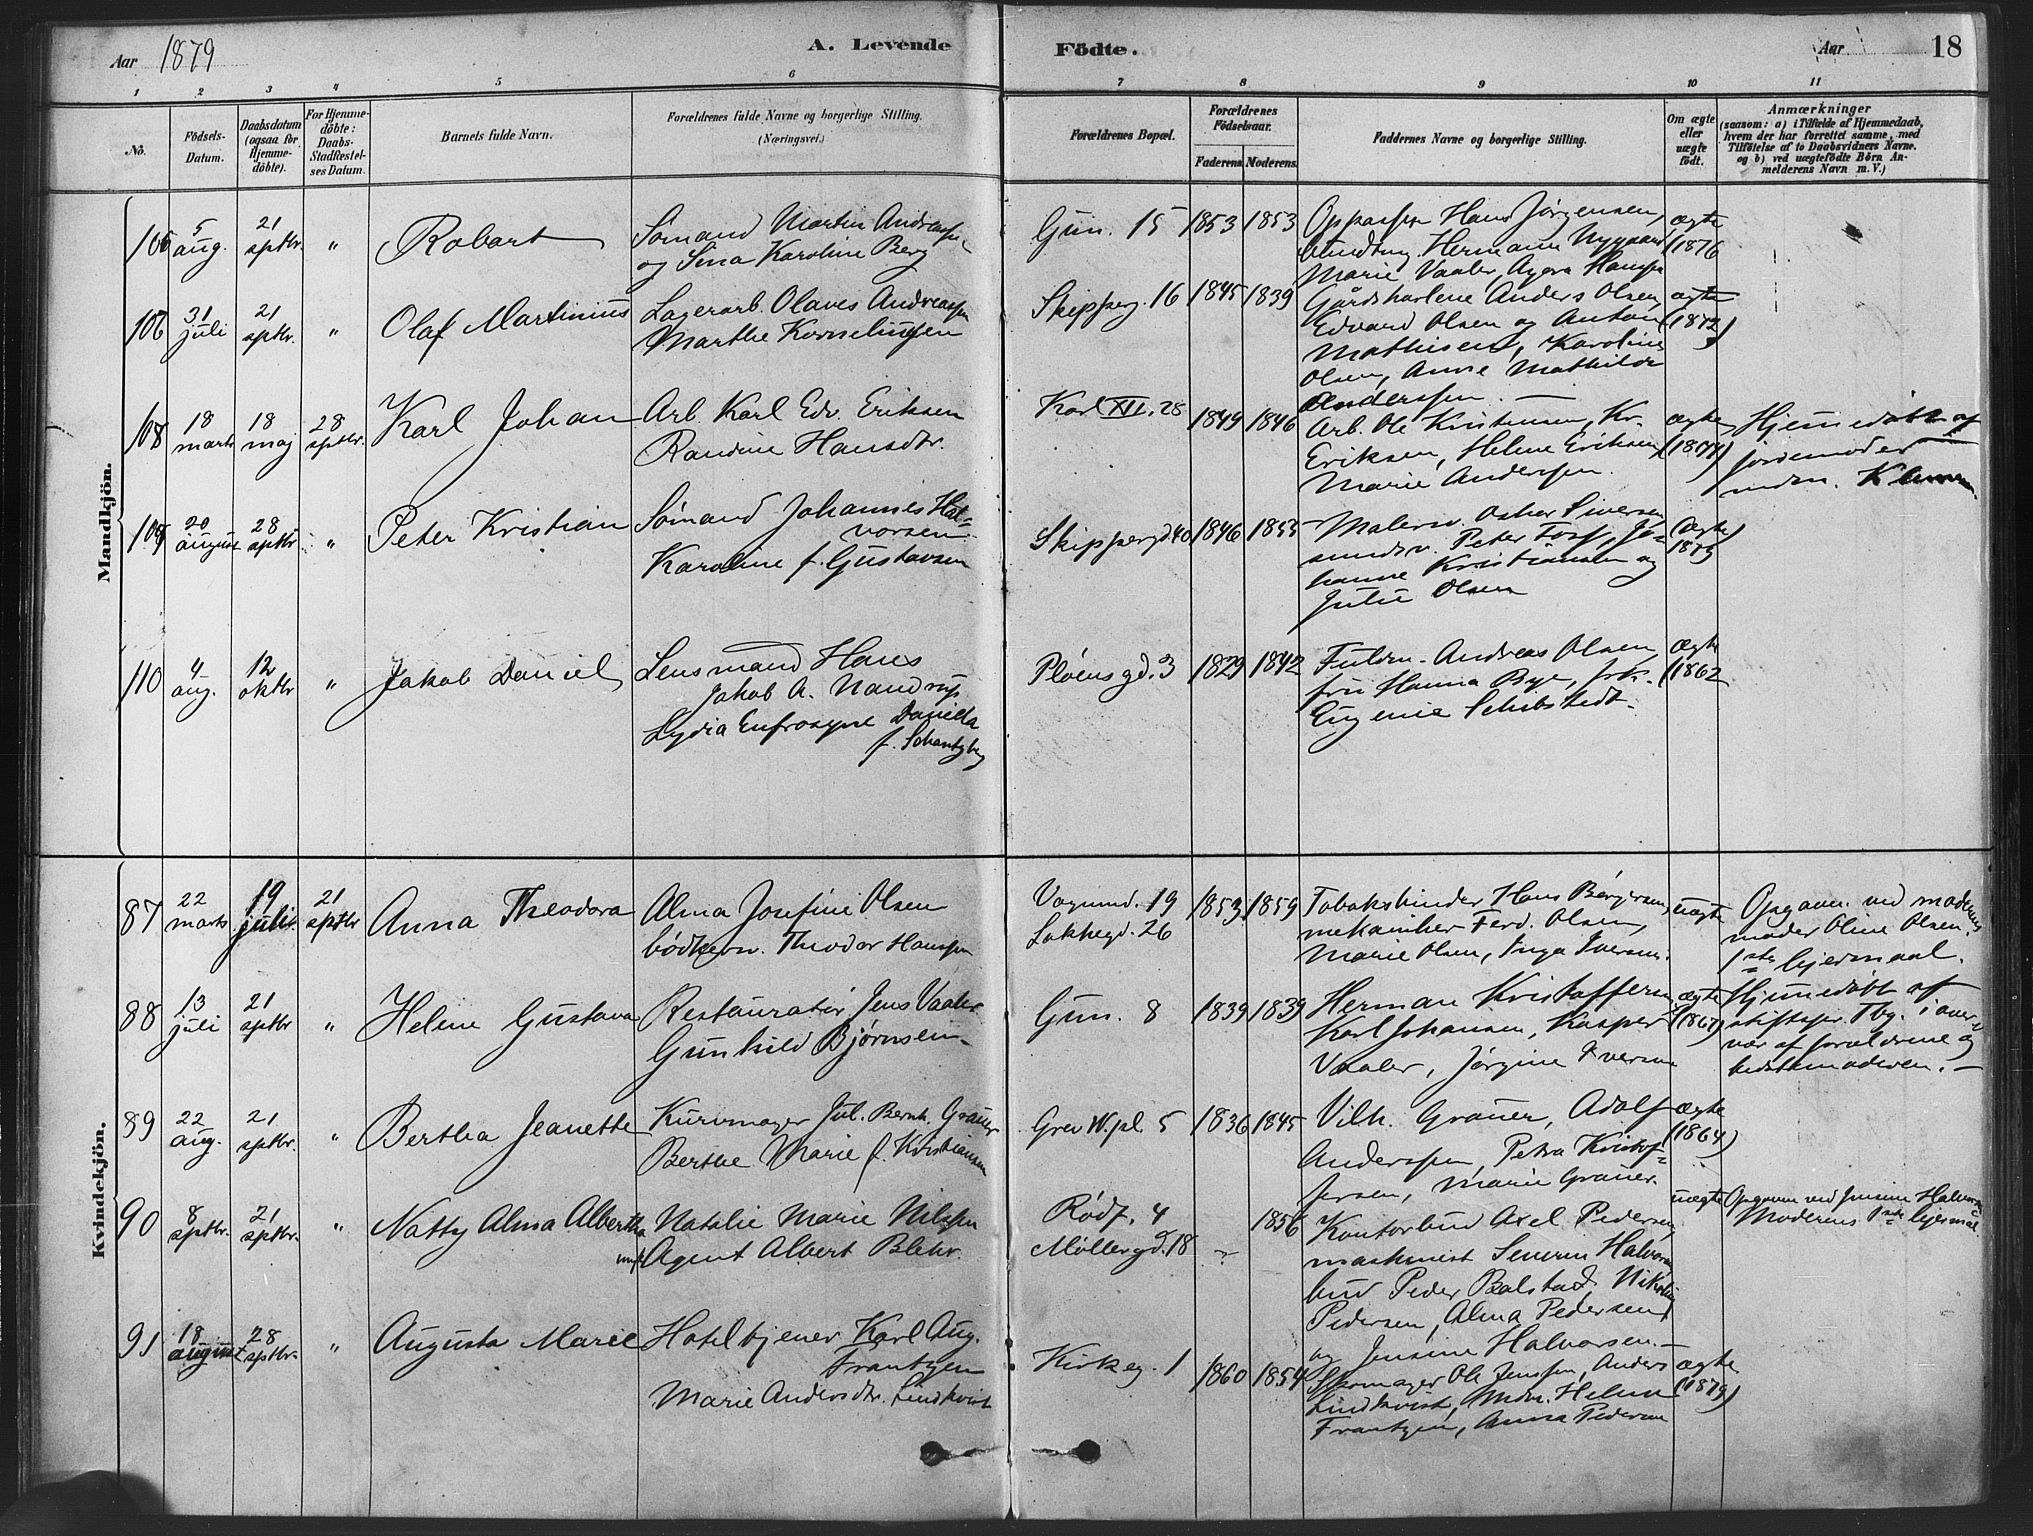 Aar 1879
A. Levende Födte.
Aar
18
1 2 3 4 5 6 7 8 9 10 11
No.
Födsels-Datum.
Daabsdatum (ogsaa for Hjemme-döbte).
For Hjemme-döbte: Daabs-Stadfæstel-ses Datum.
Barnets fulde Navn.
Forældrenes fulde Navne og borgerlige Stilling.
(Næringsvei.)
Forældrenes Bopæl.
Forældrenes Födselsaar.
Faderens. Moderens.
Faddernes Navne og borgerlige Stilling.
Om ægte eller uægte födt.
Anmærkninger
(saasom: a) i Tilfælde af Hjemmedaab,
hvem der har forrettet samme, med
Tilföielse af to Daabsvidners Navne.
og b) ved uægtefödte Börn An-
melderens Navn m. V.)
Mandkjön.
106 5 aug. 21 sptbr. " Robart
Sömand Martin Andreassen
og Sina Karoline Berg
Gün. 15 1853 1853
Oppasser Hans Jørgensen,
Hermann Nygaard
Marie Vaaler, Hansen
ægte (1876
31 juli 21 sptbr. " Olaf Martinius
Lagerarb. Olaves Andreassen
Marthe Korneliussen
Skipperg. 16 1845 1839
Gårdskarlene Anders Olsen
Edvard Olsen og Anton
Mathisen, Karoline
Olsen, Anne Mathilde
Anderssen. —
ægte (1872)
108 18 marts 18 maj 28 sptbr. Karl Johan
Arb. Karl Edv. Eriksen
Randine Hansdtr.
Karl XII. 28 1849 1846
Arb. Ole Kristensen, Kr.
Eriksen, Helene Eriksen,
Marie Anderssen.
ægte (1874)
Hjemmedöbt af
jordemoder
mdm.
109 20 august 28 sptbr " Peter Kristian
Sömand Johannes Hal-
vorsen
Karoline f. Gustavsen
Skippergd. 40 1846 1855
Malersv. Oskar Siversen
Peter Foss, Jo-
hanne Kristiansen og
Julie Olsen
Ægte
110 4 aug. 12 oktbr " Jakob Daniel
Lensmand Hans
Jakob A. Nandrup
Lydia Eufrosyne Daniella
f. Schantzberg
Pløensgd. 3 1829 1842
Fuldm. Andreas Olsen
fru Hanna Bye, frk.
Eugenie Schibstedt.
ægte (1862
Kvindekjön.
87 22 marts 19 juli. 21 sptbr Anna Theodora
Alma Josefine Olsen
bödkersv. Theodor Hanssen
Vognmd. 19
Lakkegd. 26
1853 1859
Tobaksbinder Hans Børgersen,
mekaniker Ferd. Olsen,
Marie Olsen, Inga Iversen.
uægte
Opgaven ved moderens
moder Oline Olsen.
1ste lejermaal.
88 13 juli 21 sptbr " Helene Gustava
Restauratör Jens Vaaler
Gunhild Bjørnsen
Gün. 8 1839 1839
Herman Kristoffersen
Karl Johansen, Kasper
Vaaler, Jørgine Iversen
ægte (1867)
Hjemmedöbt af
stiftspr. Tbg. i over-
vær af forældrene og
bedstemoderen. —
89 22 aug. 21 sptbr. " Bertha Jeanette
Kurvmager Jul. Bernh. Grauer
Berthe Marie f. Kristiansen
Grev W. pl. 5 1836 1845
Vilh. Grauer, Adolf
Anderssen, Petra Kristof-
fersen, Marie Grauer.
ægte (1864)
90 8 sptbr. 21 sptbr. " Natty Alma Albertha
Natalie Marie Nilssen
Agent Albert Blehr.
Rödf. 4
Møllergd. 18
" 1856
Kontorbud Axel Pedersen,
maskinist Severin Halvorsen
bud Peder Balstad Nikoline
Pedersen, Alma Pedersen
og Jensine Halvorsen. —
uægte
Opgaven ved Jensine Halvorsen
Moderens 1ste lejermål.
91 18 august 28 sptbr. " Augusta Marie
Hoteltjener Karl Aug.
Frantzen
Marie Andersdtr. Lindkvist
Kirkeg. 1 1860 1854
Skomager Ole Jenssen, Anders
Lindkvist, Mdm. Helene
Frantzen, Anna Pedersen
ægte (1879)